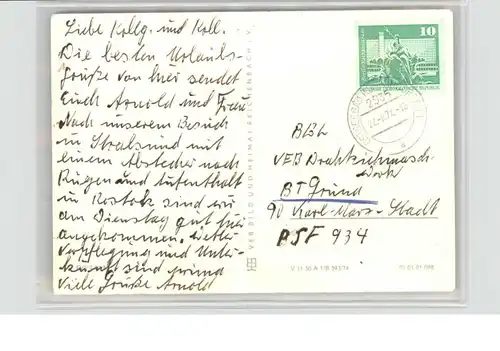 Liebe Kollg. und Koll.
Die besten Urlaubs-
grüße von hier sendet
Euch Arnold und Frau
Nach unserem Besuch
in Stralsund mit
einem Abstecher nach
Rügen und Aufenthalt
in Rostock sind wir
am Dienstag gut hier
angekommen. Wetter
Verpflegung und Unter-
kunft sind prima
Viele Grüße Arnold
VEB BILD UND HEIMAT REICHENBACH i. V.
10
2355
BBZ
VEB Drahtziehmasch
werk
BT Grüna
90 Karl-Marx-Stadt
PSF 934